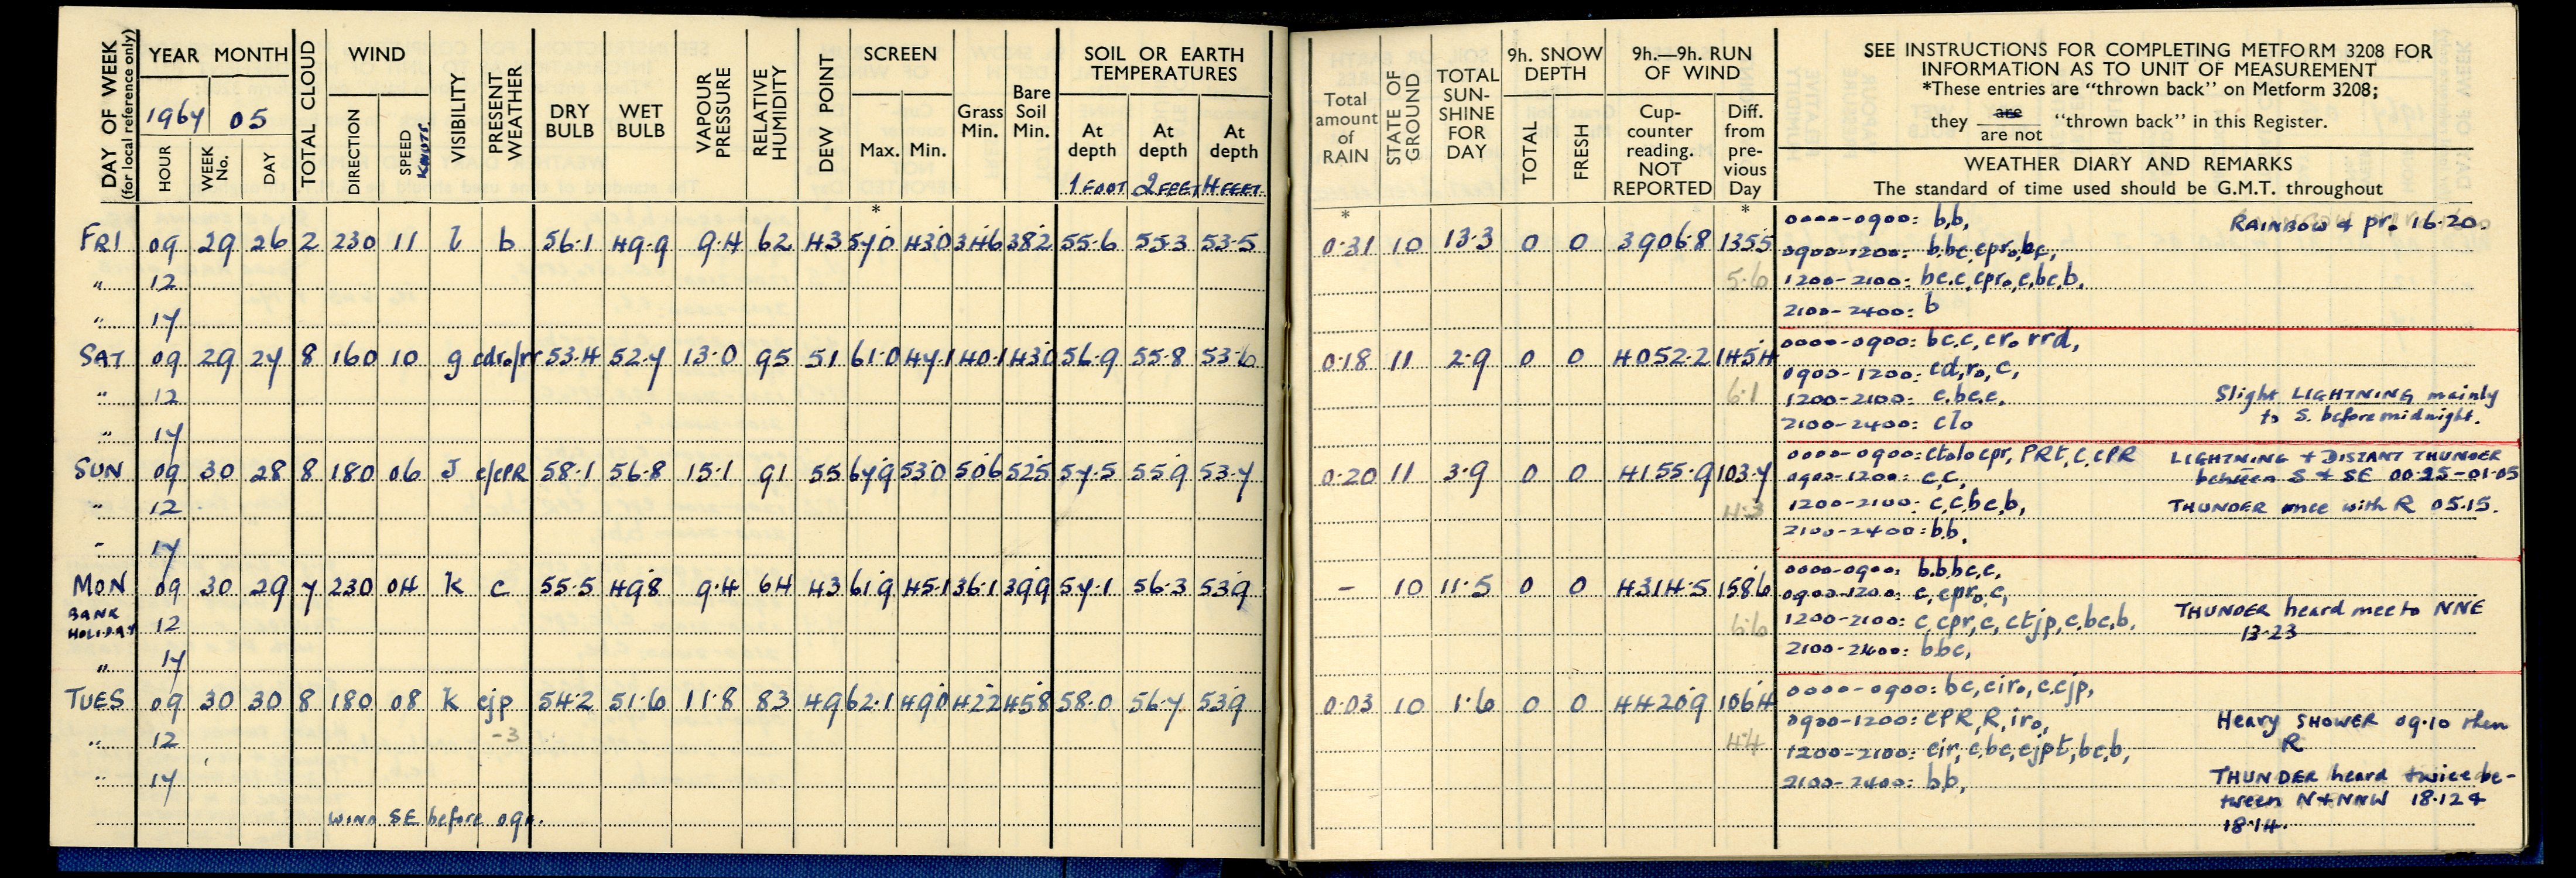 DAY OF WEEK (for local reference only)
YEAR MONTH
1967 05
HOUR WEEK No. DAY
TOTAL CLOUD
WIND
DIRECTION SPEED KNOTS
VISIBILITY
PRESENT WEATHER
DRY BULB
WET BULB
VAPOUR PRESSURE
RELATIVE HUMIDITY
DEW POINT
SCREEN
Max. Min.
Grass Min.
Bare Soil Min.
SOIL OR EARTH TEMPERATURES
At depth 1 FOOT
At depth 2 FEET
At depth 4 FEET
*
FRI 09 29 26 2 230 11 l b 56.1 49.9 9.4 62 43 57.0 43.0 34.6 38.2 55.6 55.3 53.5
" 12
" 17
SAT 09 29 27 8 160 10 g cdr₀/rr 53.4 52.7 13.0 95 51 61.0 47.1 40.1 43.0 56.9 55.8 53.6
" 12
" 17
SUN 09 30 28 8 180 06 J c/cPR 58.1 56.8 15.1 91 55 67.9 53.0 50.6 52.5 57.5 55.9 53.7
" 12
" 17
MON 09 30 29 7 230 04 k c 55.5 49.8 9.4 64 43 61.9 45.1 36.1 39.9 57.1 56.3 53.9
BANK HOLIDAY 12
" 17
TUES 09 30 30 8 180 08 k cjp 54.2 51.6 11.8 83 49 62.1 49.0 42.2 45.8 58.0 56.7 53.9
" 12 -3
" 17
WIND SE before 09h.
Total amount of RAIN
STATE OF GROUND
TOTAL SUN-SHINE FOR DAY
9h. SNOW DEPTH
TOTAL FRESH
9h.—9h. RUN OF WIND
Cup-counter reading. NOT REPORTED
Diff. from pre-vious Day
SEE INSTRUCTIONS FOR COMPLETING METFORM 3208 FOR
INFORMATION AS TO UNIT OF MEASUREMENT
*These entries are "thrown back" on Metform 3208;
they are / are not "thrown back" in this Register.
WEATHER DIARY AND REMARKS
The standard of time used should be G.M.T. throughout
* *
0.31 10 13.3 0 0 3906.8 135.5
5.6
0000-0900: b,b, RAINBOW & pr₀ 16.20.
0900-1200: b.bc,cpr₀,bc,
1200-2100: bc.c,cpr₀,c,bc,b.
2100-2400: b
0.18 11 2.9 0 0 4052.2 145.4
6.1
0000-0900: bc.c, cr₀ rrd,
0900-1200: cd,r₀, c,
1200-2100: c.bc.c. Slight LIGHTNING mainly
to S. before midnight.
2100-2400: clo
0.20 11 3.9 0 0 4155.9 103.7
4.3
0000-0900: ctolocpr, PRt, C, cPR LIGHTNING + DISTANT THUNDER
between S & SE 00.25-01.05
0900-1200: c,c,
1200-2100: c,c,bc,b, THUNDER once with R 05.15.
2100-2400: b.b.
- 10 11.5 0 0 4314.5 158.6
6.6
0000-0900: b.b,bc,c,
0900-1200: c,cpr₀,c,
1200-2100: c,cpr,c, ctjp,c,bc,b. THUNDER heard once to NNE
13.23
2100-2400: bbc,
0.03 10 1.6 0 0 4420.9 106.4
4.4
0000-0900: bc,cir₀,c.cjp,
0900-1200: cPR, R, ir₀, Heavy SHOWER 09.10 then
R
1200-2100: cir,c,bc,cjpt,bc,b,
2100-2400: bb, THUNDER heard twice be-
tween N & NNW 18.12 &
18.14.